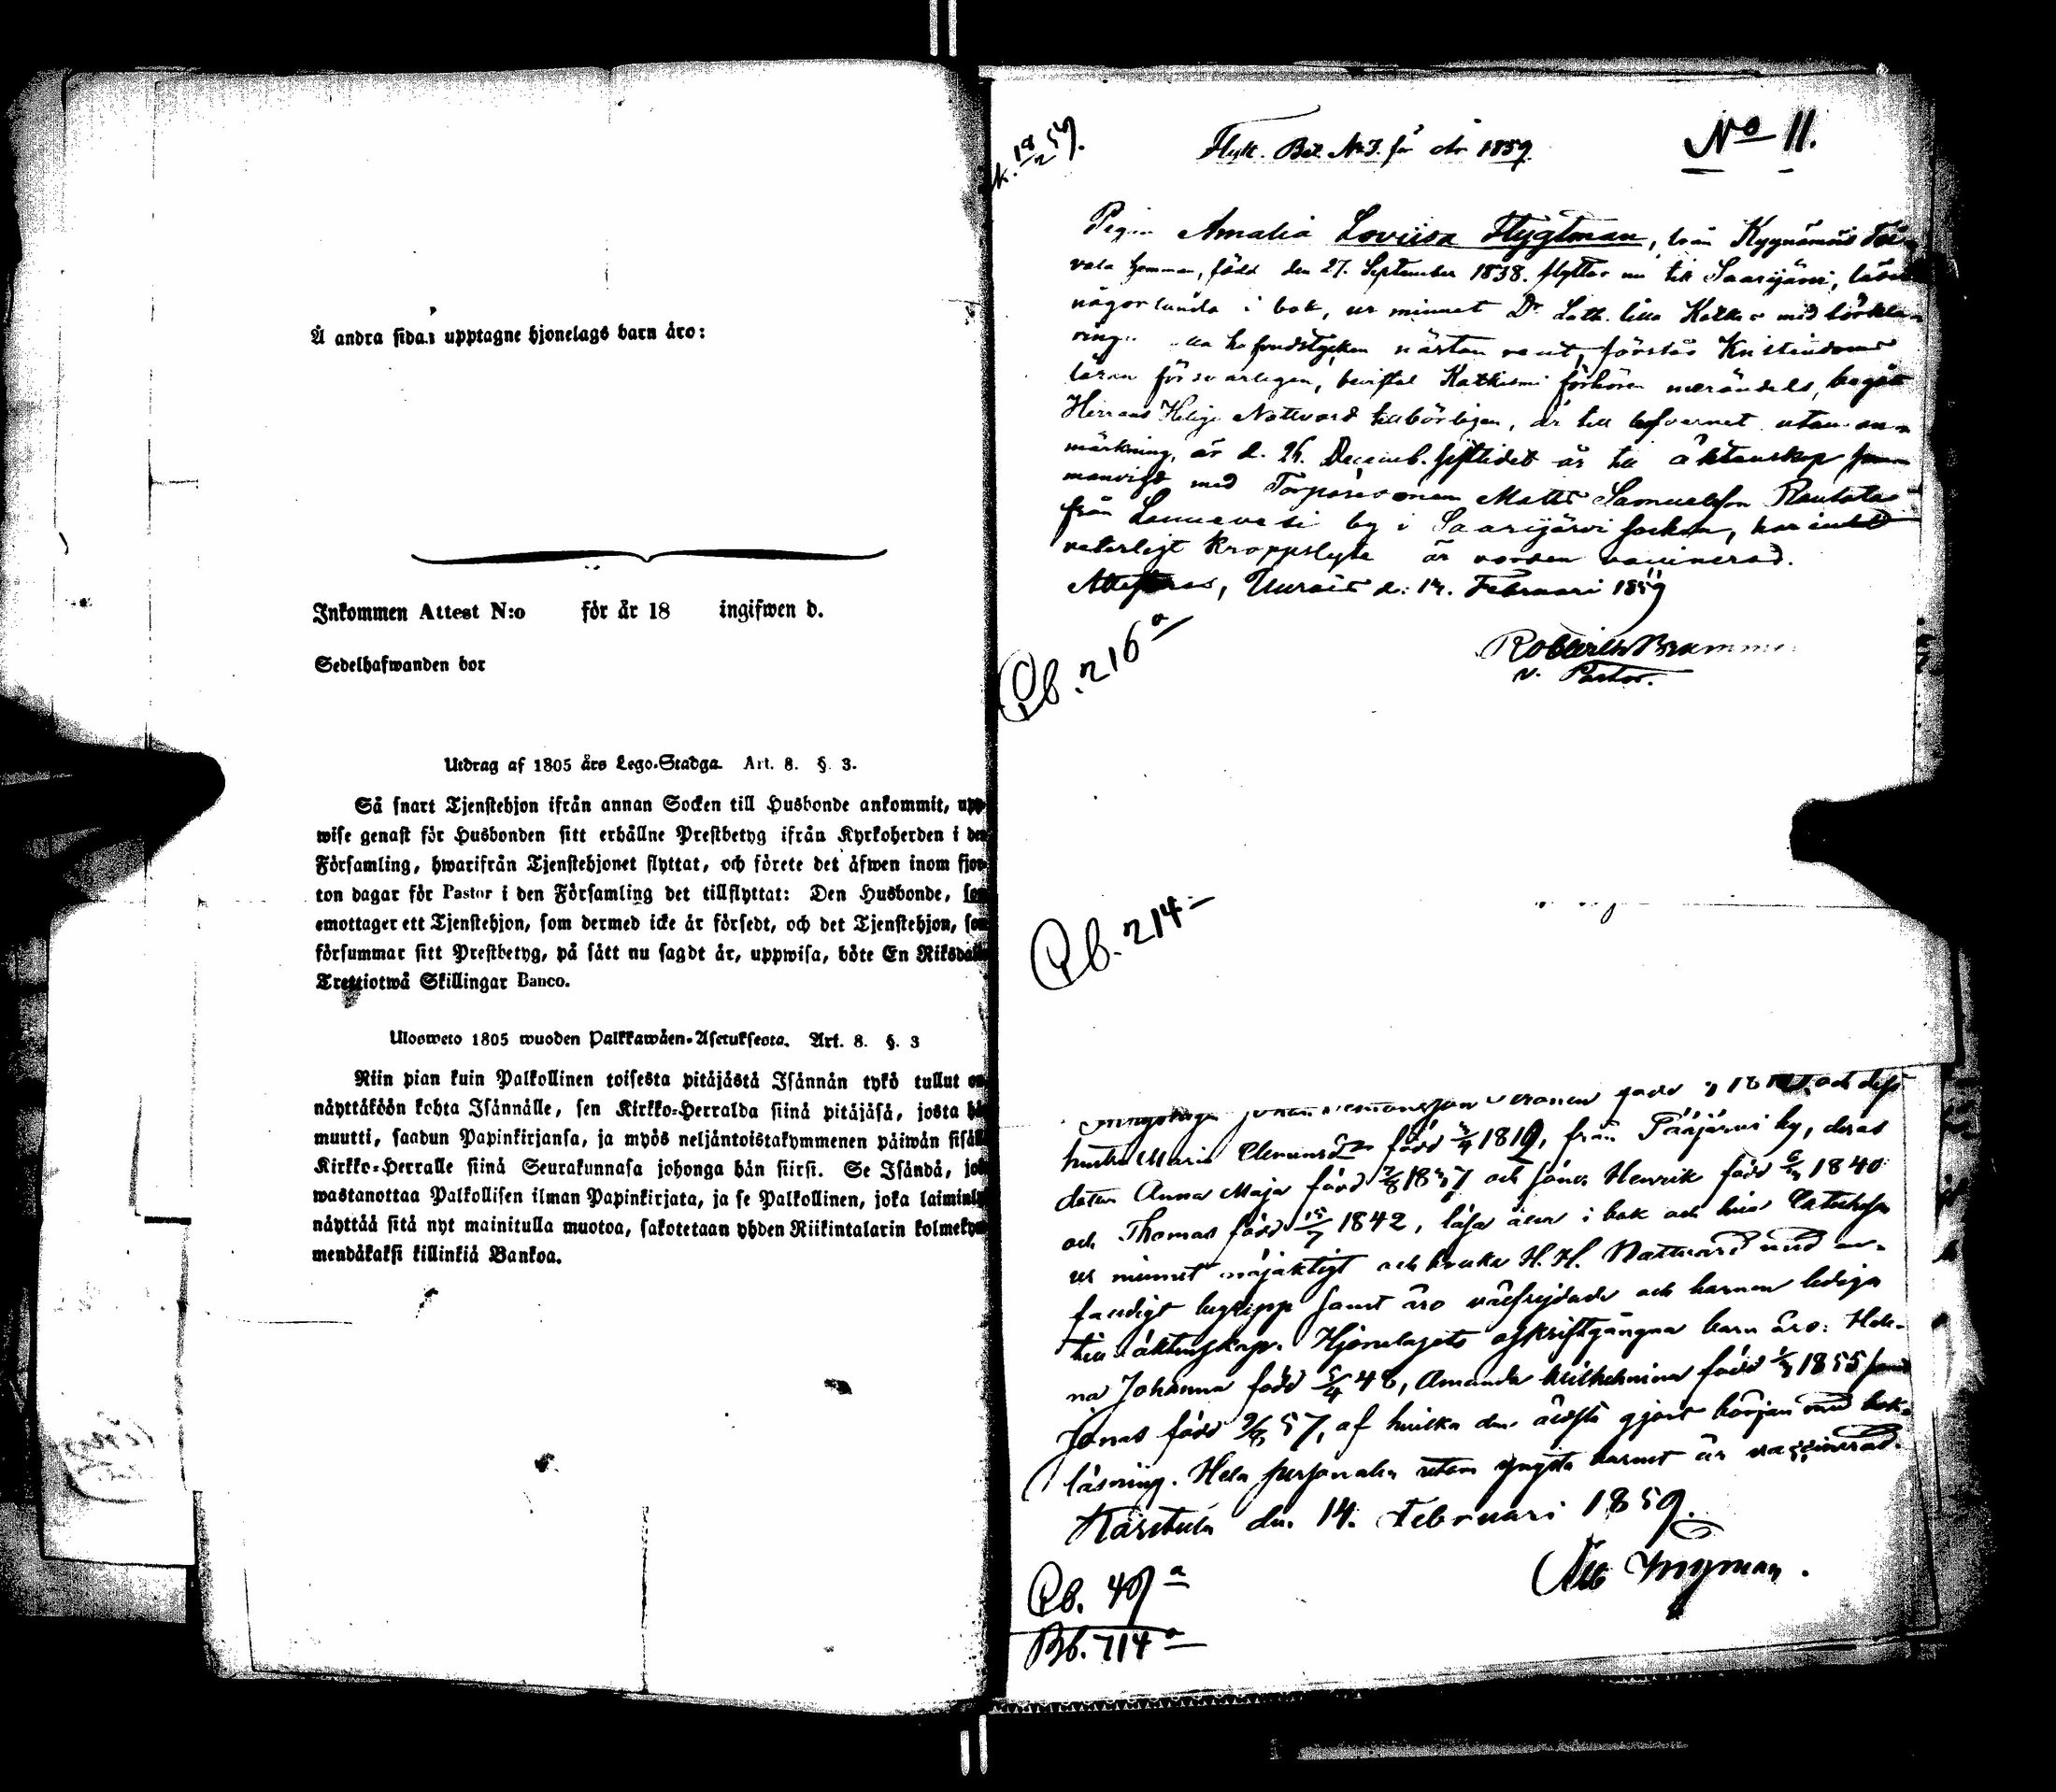 Å andra sidan upptagne hjonelags barn äro:
Inkommen Attest N:o för år 18 ingifwen d.
Sedelhafwanden bor
Utdrag af 1805 års Lego-Stadga. Art. 8. §. 3.
Så snart Tjenstehjon ifrån annan Socken till Husbonde ankommit, upp-
wise genast för Husbonden sitt erhållne Prestbetyg ifrån Kyrkoherden i den
Församling, hwarifrån Tjenstehjonet flyttat, och förete det äfwen inom fjor-
ton dagar för Pastor i den Församling det tillflyttat: Den Husbonde, som
emottager ett Tjenstehjon, som dermed icke är försedt, och det Tjenstehjon, som
försummar sitt Prestbetyg, på sätt nu sagdt är, uppwisa, böte En Riksdaler
Trettiotwå Skillingar Banco.
Ulosweto 1805 wuoden Palkkawäen-Asetuksesta. Art. 8. §. 3
Niin pian kuin Palkollinen toisesta pitäjästä Isännän tykö tullut on
näyttäköön kohta Isännälle, sen Kirkko-Herralda siinä pitäjäsä, josta hän
muutti, saadun Papinkirjansa, ja myös neljäntoistakymmenen päiwän sisällä
Kirkko-Herralle siinä Seurakunnasa johonga hän siirsi. Se Isändä, joka
wastanottaa Palkollisen ilman Papinkirjata, ja se Palkollinen, joka laiminlyö
näyttää sitä nyt mainitulla muotoa, sakotetaan yhden Riikintalarin kolmekym-
mendäkaksi killinkiä Bankoa.
Flytt. Bet. No 3. för år 1859.
No 11.
Pigan Amalia Lovisa Flygtman, från Kyynämöis
vala hemman, född den 27. September 1838. flyttar nu till Saarijärvi, läser
någorlunda i bok, ur minnet Dr Luth. lilla Kateches med förkla-
ring hufvudstycken nästan rent, förstår Kristendoms
läran försvarligen, bevistat Katkismi förhören merändels, begått
Herrans Helige Nattvard tillbörligen, är till lefvernet utan an-
märkning, är d. 26. Decemb. sistlidet år till äktenskap sam
manvigd med Torparesonen Matts Samuelsson Rautala
från Lannevesi by i Saarijärvi socken, har intet
veterligt kroppslyte är vorden vaccinerad.
Attesteras, Uurais d. 14. Februari 1859
v. Pastor.
Cb. 216 a
Cb. 214
hustru Maria född 1819, från Pääjärvi by, deras
dotter Anna Maja född 1837 och söner Henrik född 1840
och Thomas född 15/7 1842, läsa alla i bok och sina Catechesen
ur minnet nöjaktigt och bruka H. H. Nattvard med an-
ständigt begripp samt äro välfrejdade och barnen lediga
till äktenskap. Hjonelagets oskriftgångna barn äro: Hele-
na Johanna född 5/4 48, Amanda Wilhelmina född 1855 samt
Jonas född 57, af hvilka den äldsta gjort början med bok-
läsning. Hela personalen utom yngsta barnet är vaccinerad.
Karstula den 14. Februari 1859.
Cb. 407 a
Bb. 714 a